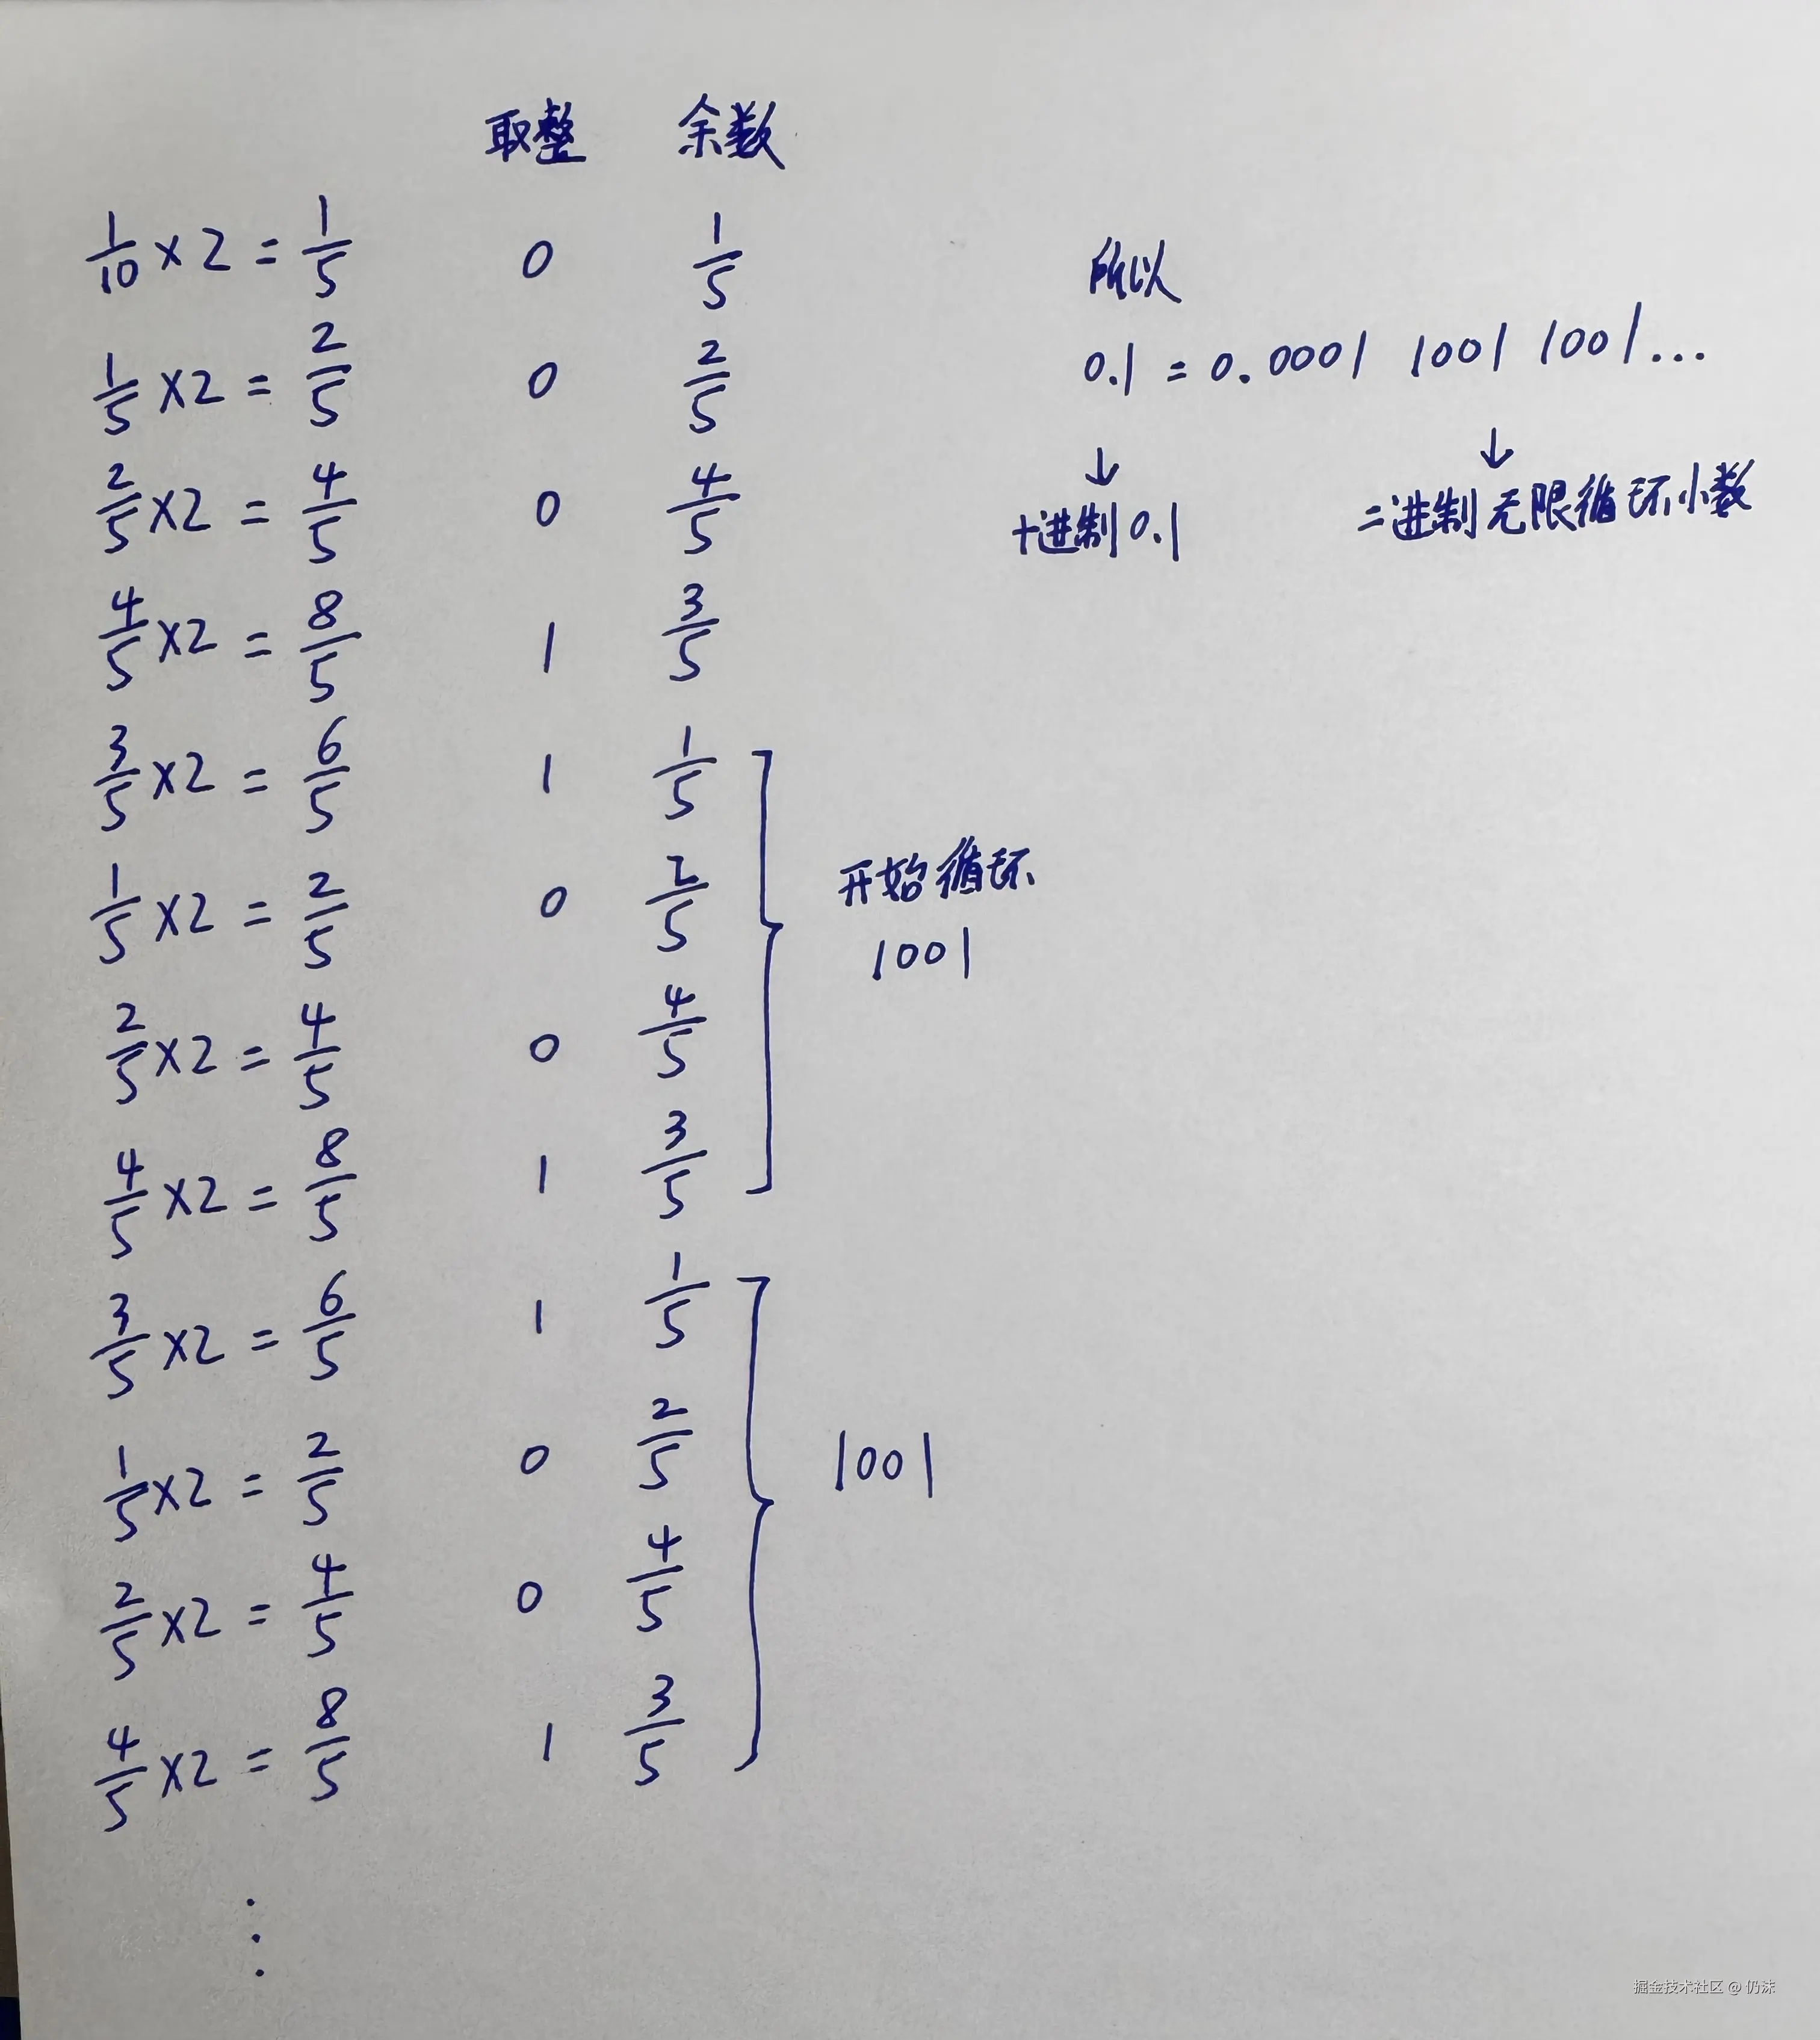 取整 余数
1/10 ×2 = 1/5 0 1/5
1/5 ×2 = 2/5 0 2/5
2/5 ×2 = 4/5 0 4/5
4/5 ×2 = 8/5 1 3/5
3/5 ×2 = 6/5 1 1/5
1/5 ×2 = 2/5 0 2/5
2/5 ×2 = 4/5 0 4/5
4/5 ×2 = 8/5 1 3/5
3/5 ×2 = 6/5 1 1/5
1/5 ×2 = 2/5 0 2/5
2/5 ×2 = 4/5 0 4/5
4/5 ×2 = 8/5 1 3/5
⋮
开始循环
1001
1001
所以
0.1 = 0.0001 1001 1001...
↓ ↓
十进制0.1 二进制无限循环小数
掘金技术社区 @ 仍沫